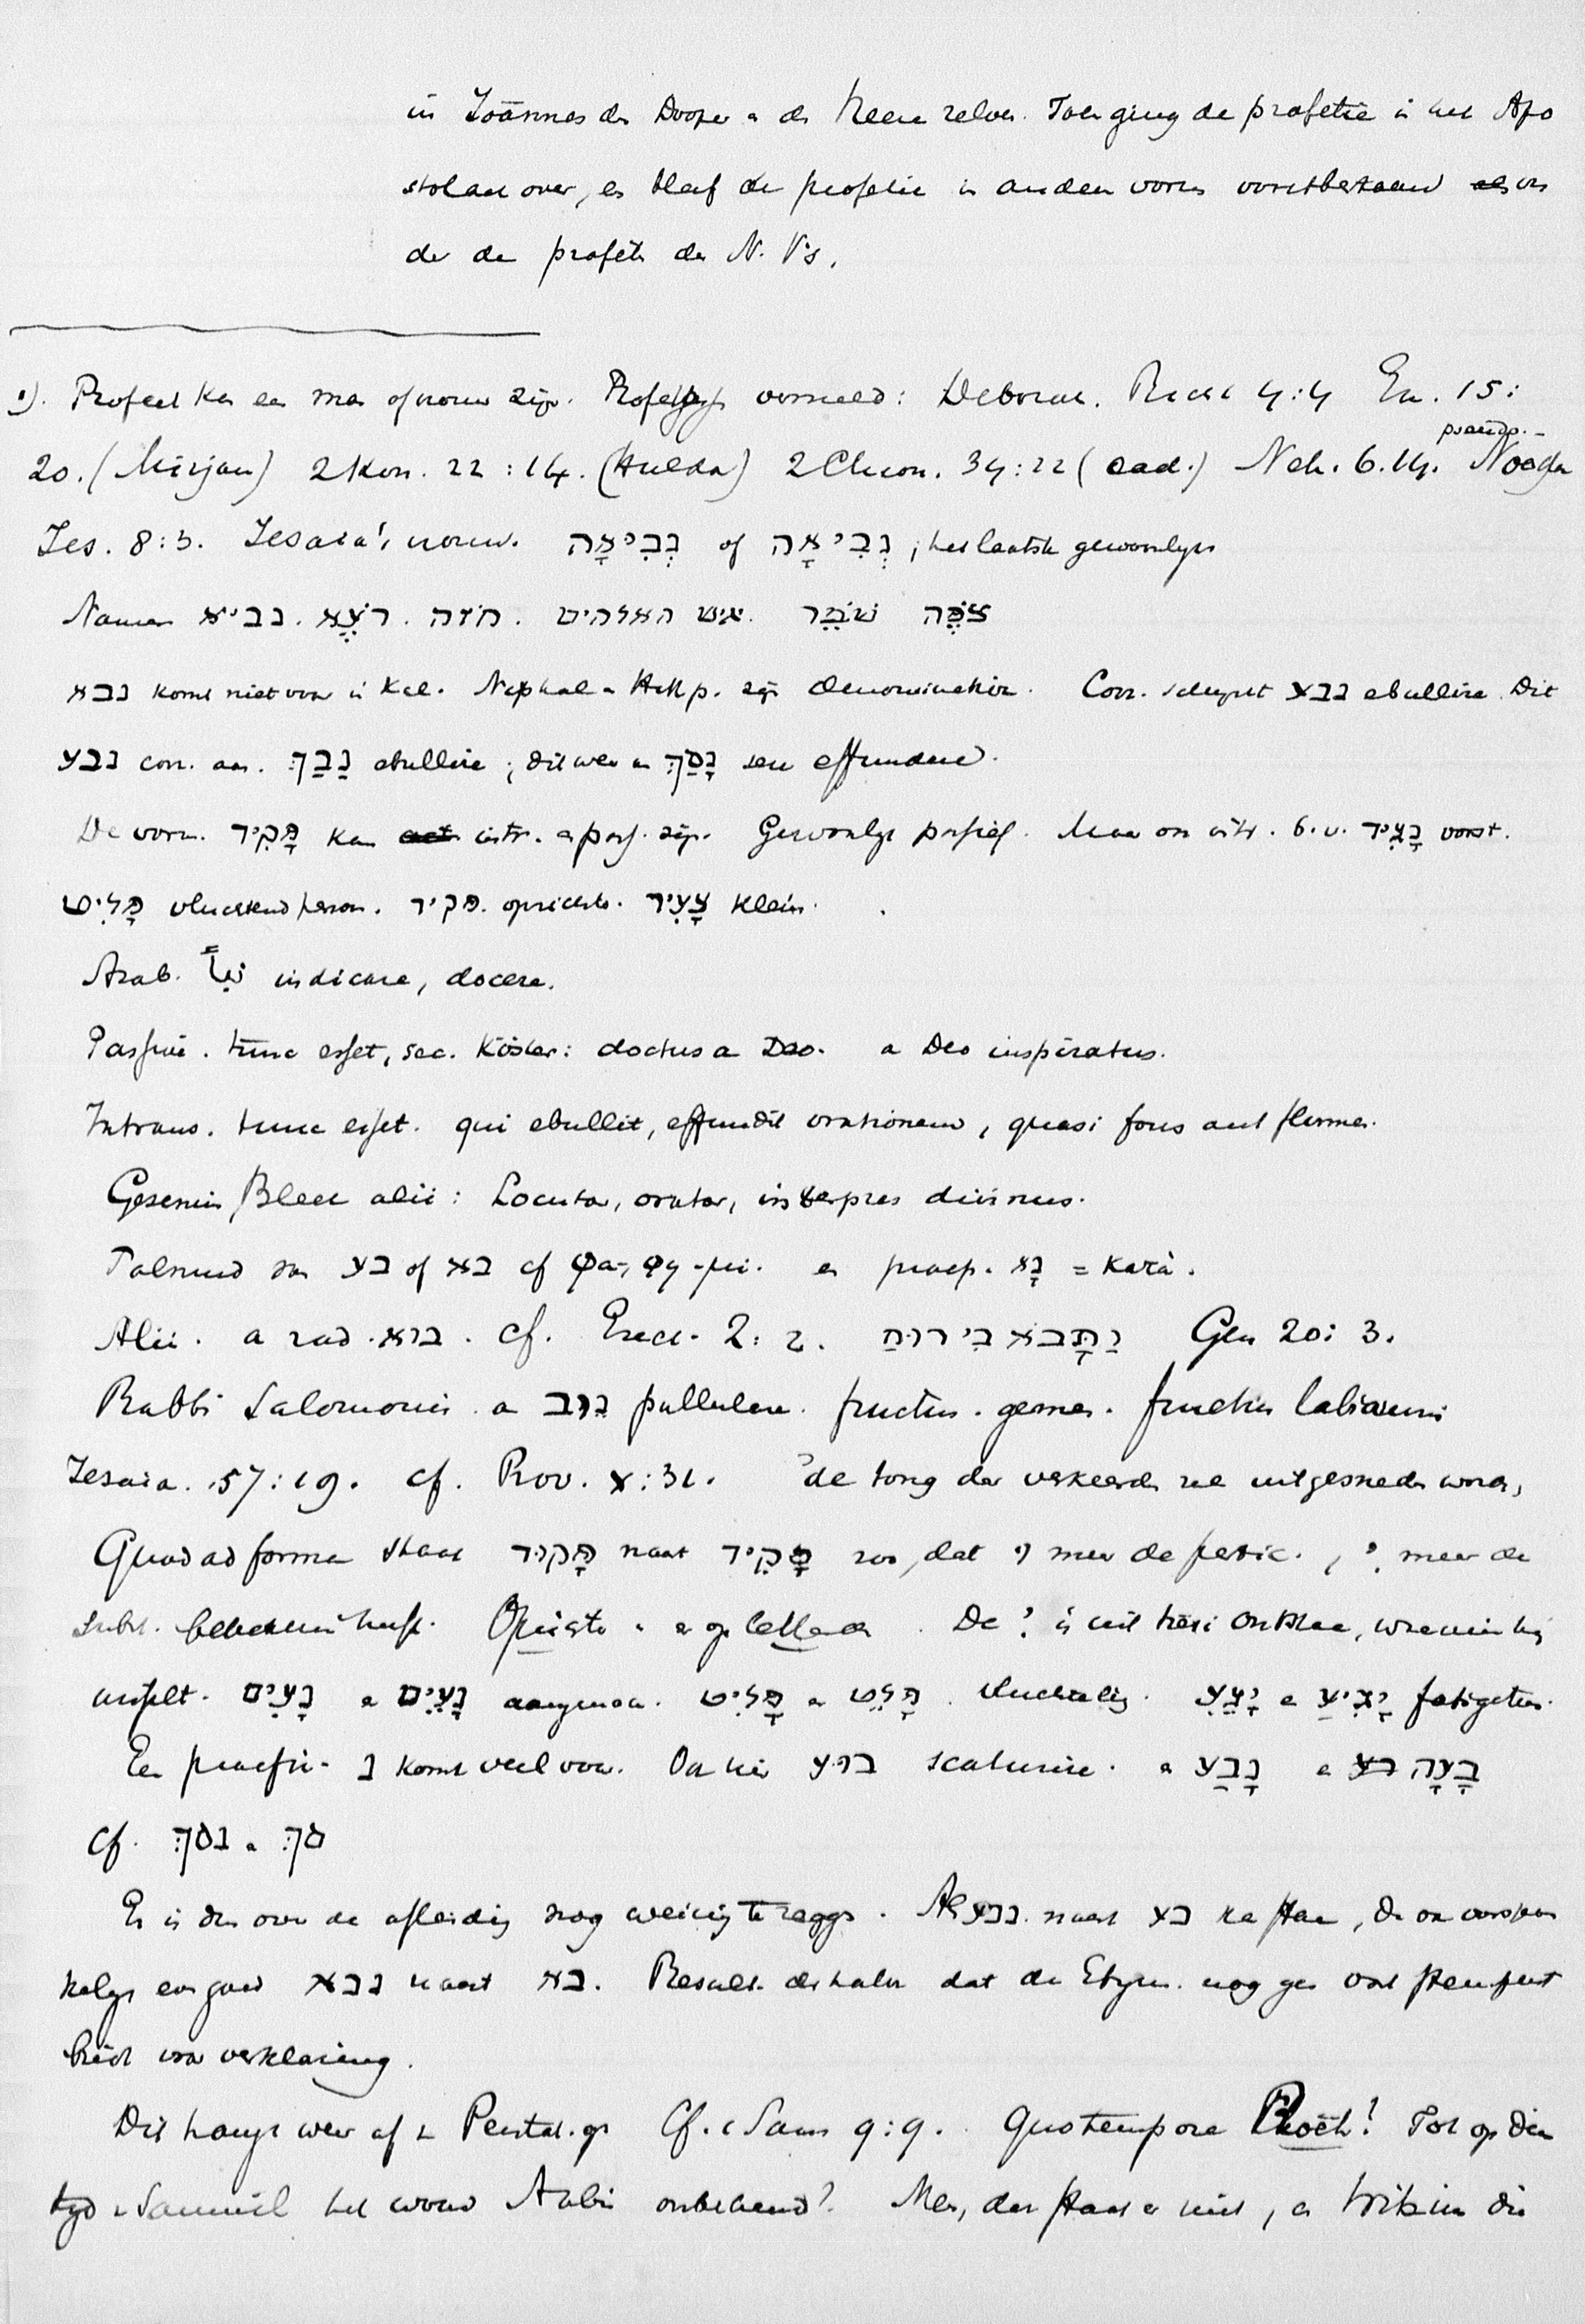 in Joännes den Dooper en den Heere zelven. Toen ging de profetie in het Apo
stolaat over, en bleef de profetie in anderen vorm voortbestaan on
der de profeten des N. V's.
1). Profeet kan een man of vrouw zijn. vermeld: Deborah. Richt 4:4 Ex. 15:
20. (Mirjam) 2 Kon. 22:14. (Hulda) 2 Chron. 34:22 (ead.) Neh. 6.14. pseudop. Noadja
Jes. 8:3. Jesaia's vrouw. נְבִיאָה of נְבִיאָה; het laatste gewoonlijk
Namen נביא. רֹאֶה. חוזה. איש האלהים. שׁוֹמֵר צוֹפֶה
נבא komt niet voor in Kal. Niphal en Hithp. zijn denominatief. Corr. schijnt נבע ebullire. Dit
נבע corr. aan נָבַךְ ebullire; dit weer aan נָסַךְ seu effundere.
De vorm. פָּקִיד kan intr. en pass. zijn. Gewoonlijk passief. Maar ook intr. b.v. נָגִיד vorst.
פָּלִיט vluchtend persoon. פקיד. opzichter. צָעִיר klein.
Arab. نبأ indicare, docere.
Passive. tunc esset, sec. Köster: doctus a Deo. a Deo inspiratus.
Intrans. tunc esset. qui ebullit, effundit orationem, quasi fons aut flumen.
Gesenius, Bleek alii: Locutor, orator, interpres divinus.
Talmud van בע of בא cf φα-, φη-μι. en praep. נָא = κατὰ.
Alii. a rad. בוא. cf. Ezech. 2:2. וַתָּבֹא בִי רוּחַ Gen 20:3.
Rabbi Salomonis a נוּב pullulare. fructus. germen. fructus labiorum
Jesaia. 57:19. cf. Prov. X:31. de tong der verkeerden zal uitgesneden worden,
Quod ad formam staat פָּקוּד naast פָּקִיד zoo, dat וּ meer de partic., ִי meer de
subst. beteekenis heeft. Opzichter en op lettende. De ִי is uit tsere ontstaan, waarmee hij
wisselt. נָעִים en נָעֵים aangenaam. פָּלִיט en פָּלֵט. vluchteling. יָגֵעַ en יָגִיעַ fatigatus.
Een praefix נ komt veel voor. Ook hier בוע scaturire. en נָבַע en בָּעָה
cf. נסך en סך
Er is dus over de afleiding nog weinig te zeggen. Als נבע. naast בע kan staan, dan ook oorspron
kelijk even goed נבא naast בא. Result. derhalve dat de Etym. nog geen vast steunpunt
biedt voor verklaring.
Dit hangt weer af v. Pentat. op Cf. 1 Sam 9:9. Quo tempore Roëh! Tot op dien
tijd v Samuël het woord Nabi onbekend? Neen, dat staat er niet, en strikt in die